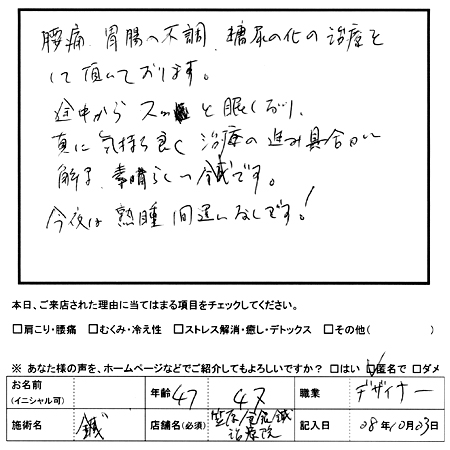 腰痛、胃腸の不調、糖尿の化の治療を
して頂いております。
途中から スーッと眠くなり、
真に気持ち良く 治療の進み具合がい
解る、素晴らしい鍼です。
今夜は 熟睡 間違いなしです!
本日、ご来店された理由に当てはまる項目をチェックしてください。
□肩こり・腰痛 □むくみ・冷え性 □ストレス解消・癒し・デトックス □その他( )
※ あなた様の声を、ホームページなどでご紹介してもよろしいですか? □はい ☑匿名で □ダメ
お名前(イニシャル可) 年齢 47 47才 職業 デザイナー
施術名 鍼 店舗名(必須) 笠原 鍼 治療院 記入日 08年10月03日